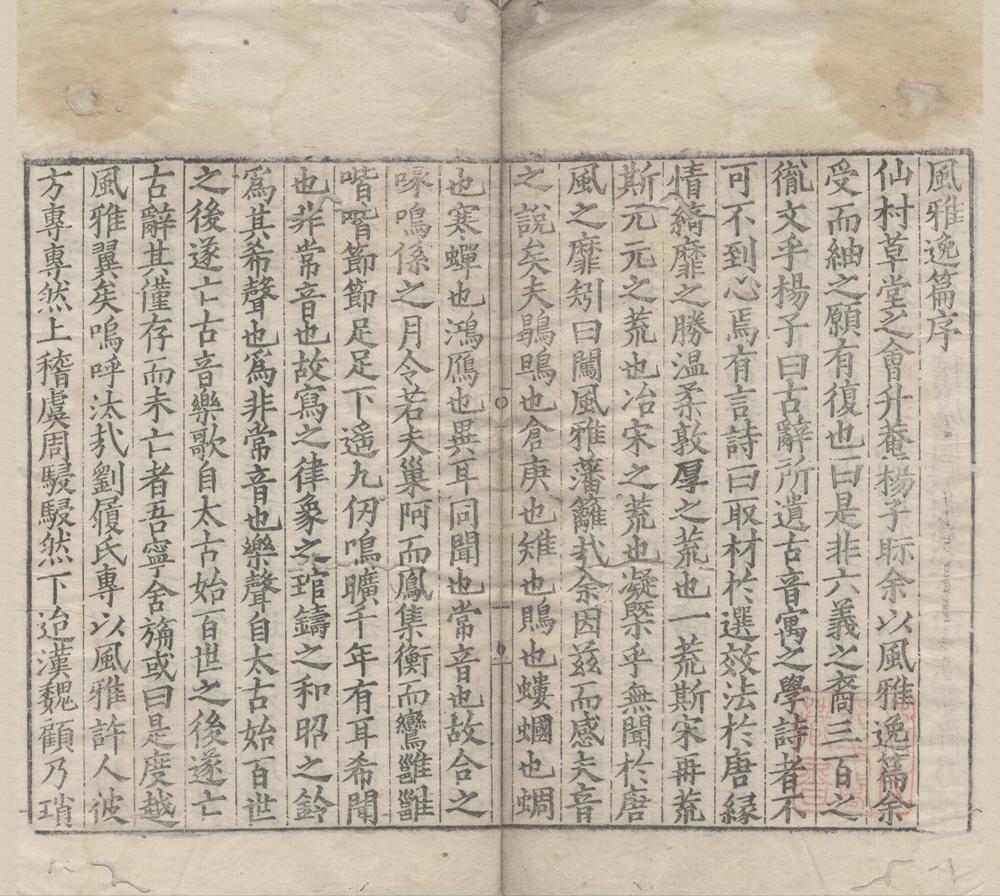 風雅逸篇序
仙村草堂之會升菴楊子眎余以風雅逸篇余
受而紬之願有復也曰是非六義之裔三百之
胤文乎楊子曰古辭所遺古音寓之學詩者不
可不到心焉有言詩曰取材於選效法於唐緣
情綺靡之勝溫柔敦厚之荒也一荒斯宋再荒
斯元元之荒也冶宋之荒也凝槩乎無聞於唐
風之靡矧曰闖風雅藩籬㢤余因茲而感夫音
之說矣夫鶗鴂也倉庚也雉也鵙也螻蟈也蜩
也寒蟬也鴻鴈也異耳同聞也常音也故合之
喙鳴係之月令若夫巢阿而鳳集衡而鸞雝雝
喈喈節節足足下遙九仞鳴曠千年有耳希聞
也非常音也故寫之律象之琯鑄之和昭之鈴
爲其希聲也爲非常音也樂聲自太古始百世
之後遂亡古音樂歌自太古始百世之後遂亡
古辭其僅存而未亡者吾寧舍旃或曰是度越
風雅翼矣嗚呼汰㢤劉履氏專以風雅許人彼
方專專然上稽虞周駸駸然下迨漢魏顧乃瑣